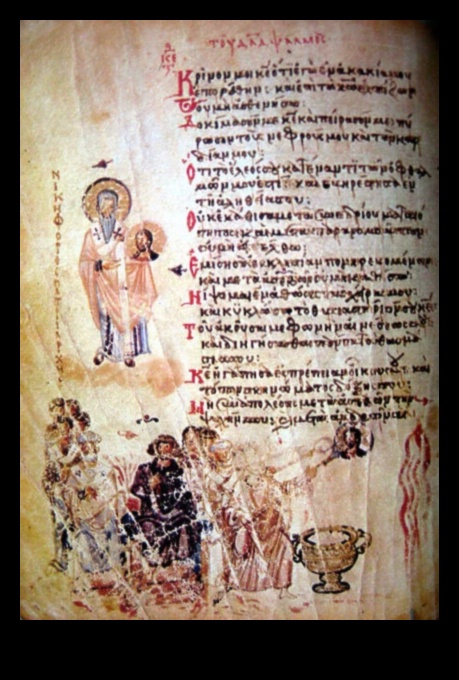 τοῦ δαδ ψαλμός
Κρῖνόν μοι κε ὅτι ἐγὼ ἐν ἀκακία μου
ἐπορεύθην· καὶ ἐπὶ τῶ κω ἐλπίζων
οὐ μὴ ἀσθενήσω:
Δοκίμασόν με κε καὶ πείρασόν με· πύ
ρωσον τοὺς νεφρούς μου καὶ τὴν καρ
δίαν μου:
Ὅτι τὸ ἔλεός σου κατέναντι τῶν ὀφθαλ
μῶν μού ἐστι· καὶ εὐηρέστησα ἐν
τῆ ἀληθεία σου:
Οὐκ ἐκάθισα μετὰ συνεδρίου ματαιό
τητος· καὶ μετὰ παρανομούντων
οὐ μὴ εἰσέλθω:
Ἐμίσησα ἐκκλησίαν πονηρευομένων·
καὶ μετὰ ἀσεβῶν οὐ μὴ καθίσω:
Νίψομαι ἐν ἀθώοις τὰς χεῖράς μου·
καὶ κυκλώσω τὸ θυσιαστήριόν σου κε
Τοῦ ἀκοῦσαί με φωνὴν αἰνέσεώς σου
καὶ διηγήσασθαι πάντα τὰ θαυμά
σιά σου:
Κε ἠγάπησα εὐπρέπειαν οἴκου σου· καὶ
τόπον σκηνώματος δόξης σου:
Μὴ συναπολέσης μετὰ ἀσεβῶν τὴν
ψυχήν μου· καὶ μετὰ ἀνδρῶν
ΝΙΚΗΦΟΡΟC ΠΑΤΡΙΑΡΧΗC